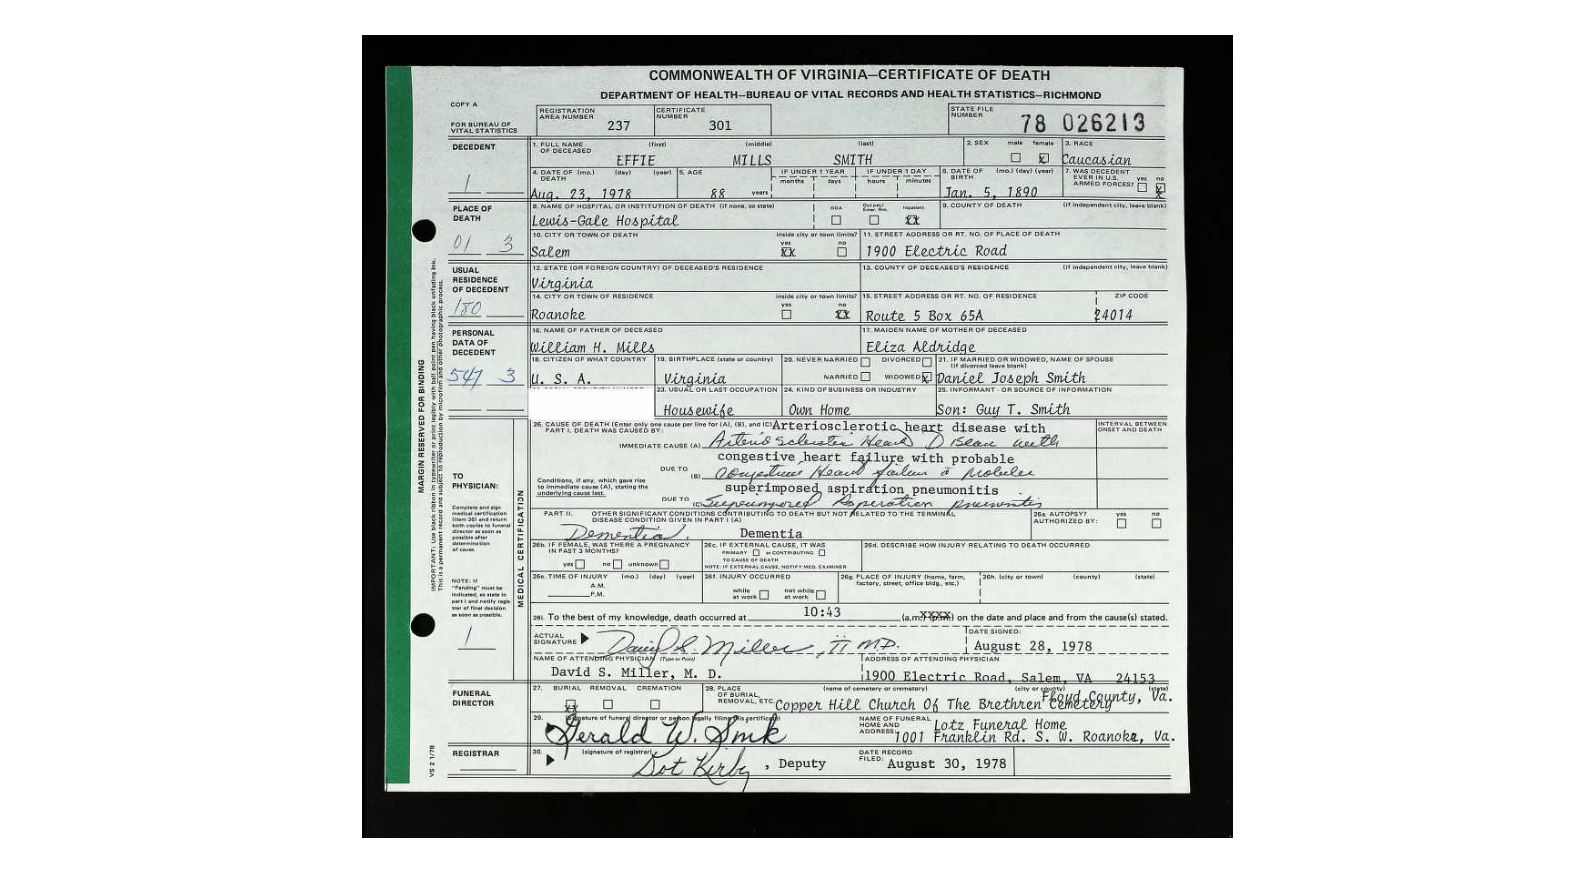 COMMONWEALTH OF VIRGINIA—CERTIFICATE OF DEATH
DEPARTMENT OF HEALTH—BUREAU OF VITAL RECORDS AND HEALTH STATISTICS—RICHMOND
COPY A
FOR BUREAU OF VITAL STATISTICS
REGISTRATION AREA NUMBER 237
CERTIFICATE NUMBER 301
STATE FILE NUMBER 78 026213
DECEDENT
1
1. FULL NAME OF DECEASED (first) (middle) (last)
EFFIE MILLS SMITH
2. SEX male female X
3. RACE Caucasian
4. DATE OF DEATH (mo.) (day) (year) Aug. 23, 1978
5. AGE 88 years
IF UNDER 1 YEAR months days
IF UNDER 1 DAY hours minutes
6. DATE OF BIRTH (mo.) (day) (year) Jan. 5, 1890
7. WAS DECEDENT EVER IN U.S. ARMED FORCES? yes no X
PLACE OF DEATH
01 3
8. NAME OF HOSPITAL OR INSTITUTION OF DEATH (if none, so state)
Lewis-Gale Hospital
DOA Inpatient XX
9. COUNTY OF DEATH (if independent city, leave blank)
10. CITY OR TOWN OF DEATH inside city or town limits? yes no
Salem XX
11. STREET ADDRESS OR RT. NO. OF PLACE OF DEATH
1900 Electric Road
USUAL RESIDENCE OF DECEDENT
180
12. STATE (OR FOREIGN COUNTRY) OF DECEASED'S RESIDENCE
Virginia
13. COUNTY OF DECEASED'S RESIDENCE (if independent city, leave blank)
14. CITY OR TOWN OF RESIDENCE inside city or town limits? yes no
Roanoke XX
15. STREET ADDRESS OR RT. NO. OF RESIDENCE ZIP CODE
Route 5 Box 65A 24014
PERSONAL DATA OF DECEDENT
547 3
16. NAME OF FATHER OF DECEASED
William H. Mills
17. MAIDEN NAME OF MOTHER OF DECEASED
Eliza Aldridge
18. CITIZEN OF WHAT COUNTRY
U. S. A.
19. BIRTHPLACE (state or country)
Virginia
20. NEVER MARRIED DIVORCED
MARRIED WIDOWED X
21. IF MARRIED OR WIDOWED, NAME OF SPOUSE
(if divorced leave blank)
Daniel Joseph Smith
23. USUAL OR LAST OCCUPATION
Housewife
24. KIND OF BUSINESS OR INDUSTRY
Own Home
25. INFORMANT - OR SOURCE OF INFORMATION
Son: Guy T. Smith
MARGIN RESERVED FOR BINDING
IMPORTANT: Use black ribbon in typewriter or print legibly with ball point pen having black unfading ink.
This is a permanent record and subject to reproduction by microfilm and other photographic process.
MEDICAL CERTIFICATION
TO PHYSICIAN:
Complete and sign medical certification (item 26) and return both copies to funeral director as soon as possible after determination of cause.
NOTE: If "Pending" must be indicated, so state in part I and notify registrar of final decision as soon as possible.
1
26. CAUSE OF DEATH (Enter only one cause per line for (A), (B), and (C)
PART I. DEATH WAS CAUSED BY:
INTERVAL BETWEEN ONSET AND DEATH
Arteriosclerotic heart disease with
IMMEDIATE CAUSE (A) Arteriosclerotic Heart Disease with
congestive heart failure with probable
DUE TO (B) Congestive Heart failure c̄ probable
Conditions, if any, which gave rise to immediate cause (A), stating the underlying cause last.
superimposed aspiration pneumonitis
DUE TO (C) Superimposed Aspiration pneumonitis
PART II. OTHER SIGNIFICANT CONDITIONS CONTRIBUTING TO DEATH BUT NOT RELATED TO THE TERMINAL
DISEASE CONDITION GIVEN IN PART I (A)
Dementia. Dementia
26a. AUTOPSY? AUTHORIZED BY: yes no
26b. IF FEMALE, WAS THERE A PREGNANCY IN PAST 3 MONTHS?
yes no unknown
26c. IF EXTERNAL CAUSE, IT WAS
PRIMARY or CONTRIBUTING
TO CAUSE OF DEATH
NOTE: IF EXTERNAL CAUSE, NOTIFY MED. EXAMINER
26d. DESCRIBE HOW INJURY RELATING TO DEATH OCCURRED
26e. TIME OF INJURY (mo.) (day) (year)
A.M.
P.M.
26f. INJURY OCCURRED
while at work not while at work
26g. PLACE OF INJURY (home, farm, factory, street, office bldg., etc.)
26h. (city or town) (county) (state)
26i. To the best of my knowledge, death occurred at 10:43 (a.m.) (p.m.) XXXX on the date and place and from the cause(s) stated.
ACTUAL SIGNATURE David S. Miller, II M.D.
DATE SIGNED: August 28, 1978
NAME OF ATTENDING PHYSICIAN (Type or Print)
David S. Miller, M. D.
ADDRESS OF ATTENDING PHYSICIAN
1900 Electric Road, Salem, VA 24153
FUNERAL DIRECTOR
27. BURIAL REMOVAL CREMATION
XX
28. PLACE OF BURIAL, REMOVAL, ETC. (name of cemetery or crematory) (city or county) (state)
Copper Hill Church Of The Brethren Cemetery Floyd County, Va.
29. (signature of funeral director or person legally filing this certificate)
Gerald W. Smk
NAME OF FUNERAL HOME AND ADDRESS:
Lotz Funeral Home
1001 Franklin Rd. S. W. Roanoke, Va.
REGISTRAR
30. (signature of registrar)
Dot Kirby, Deputy
DATE RECORD FILED: August 30, 1978
VS 2 1/78